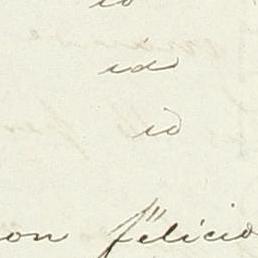 id
id
id
on félicid